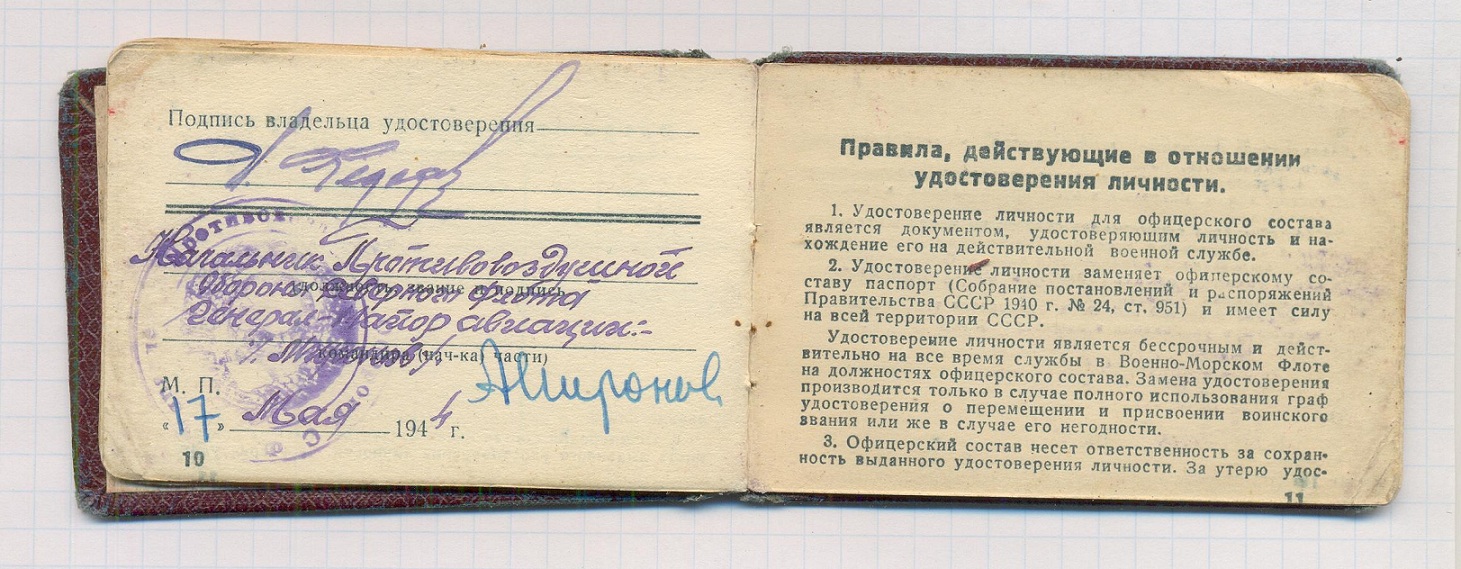 Подпись владельца удостоверения
Начальник Противовоздушной
Обороны Северного флота
должность, звание и подпись
Генерал-майор авиации:-
/Миронов/
командира (нач-ка) части)
Миронов
М. П.
"17" Мая 1944 г.
10
Правила, действующие в отношении
удостоверения личности.
1. Удостоверение личности для офицерского состава
является документом, удостоверяющим личность и на-
хождение его на действительной военной службе.
2. Удостоверение личности заменяет офицерскому со-
ставу паспорт (Собрание постановлений и распоряжений
Правительства СССР 1940 г. № 24, ст. 951) и имеет силу
на всей территории СССР.
Удостоверение личности является бессрочным и дейст-
вительно на все время службы в Военно-Морском Флоте
на должностях офицерского состава. Замена удостоверения
производится только в случае полного использования граф
удостоверения о перемещении и присвоении воинского
звания или же в случае его негодности.
3. Офицерский состав несет ответственность за сохран-
ность выданного удостоверения личности. За утерю удос-
11